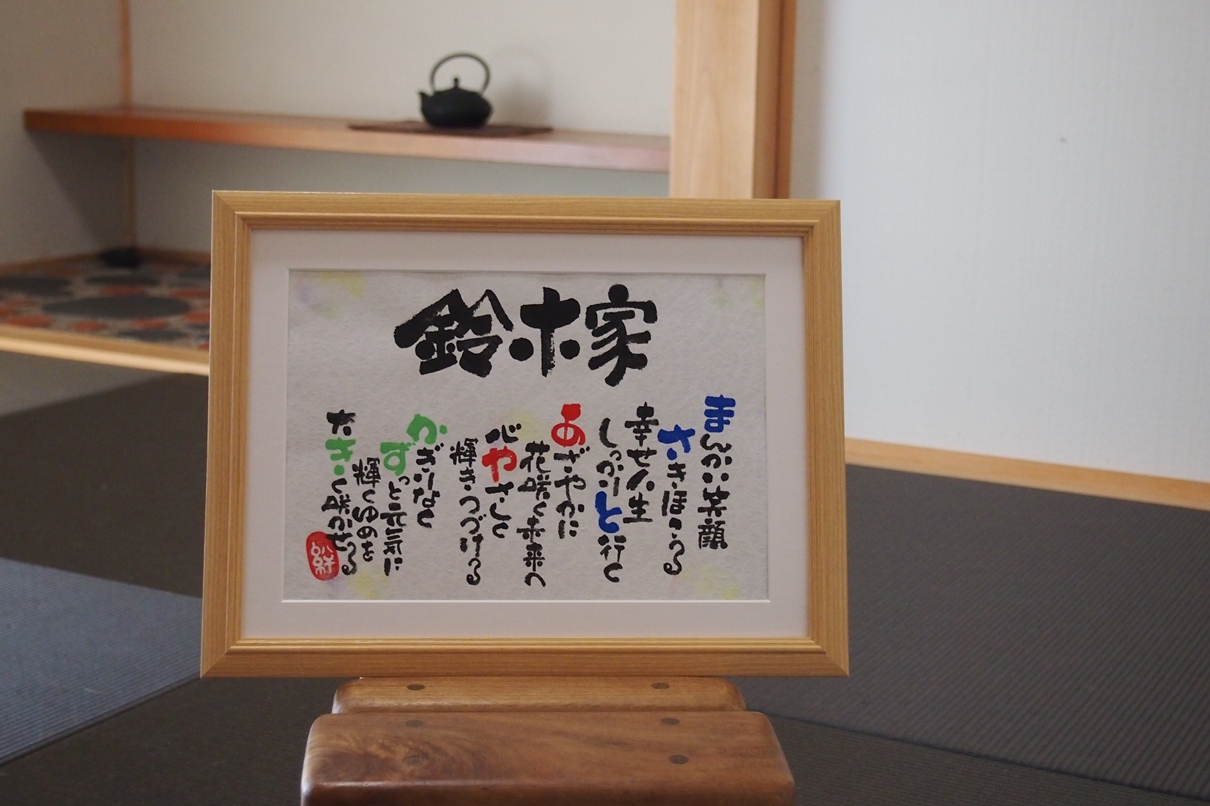 鈴木家
まんかい笑顔
さきほこる
幸せ人生
しっかりと行く
あざやかに
花咲く未来へ
心やさしく
輝きつづける
かぎりなく
ずっと元気に
輝くゆめを
大きく咲かせる